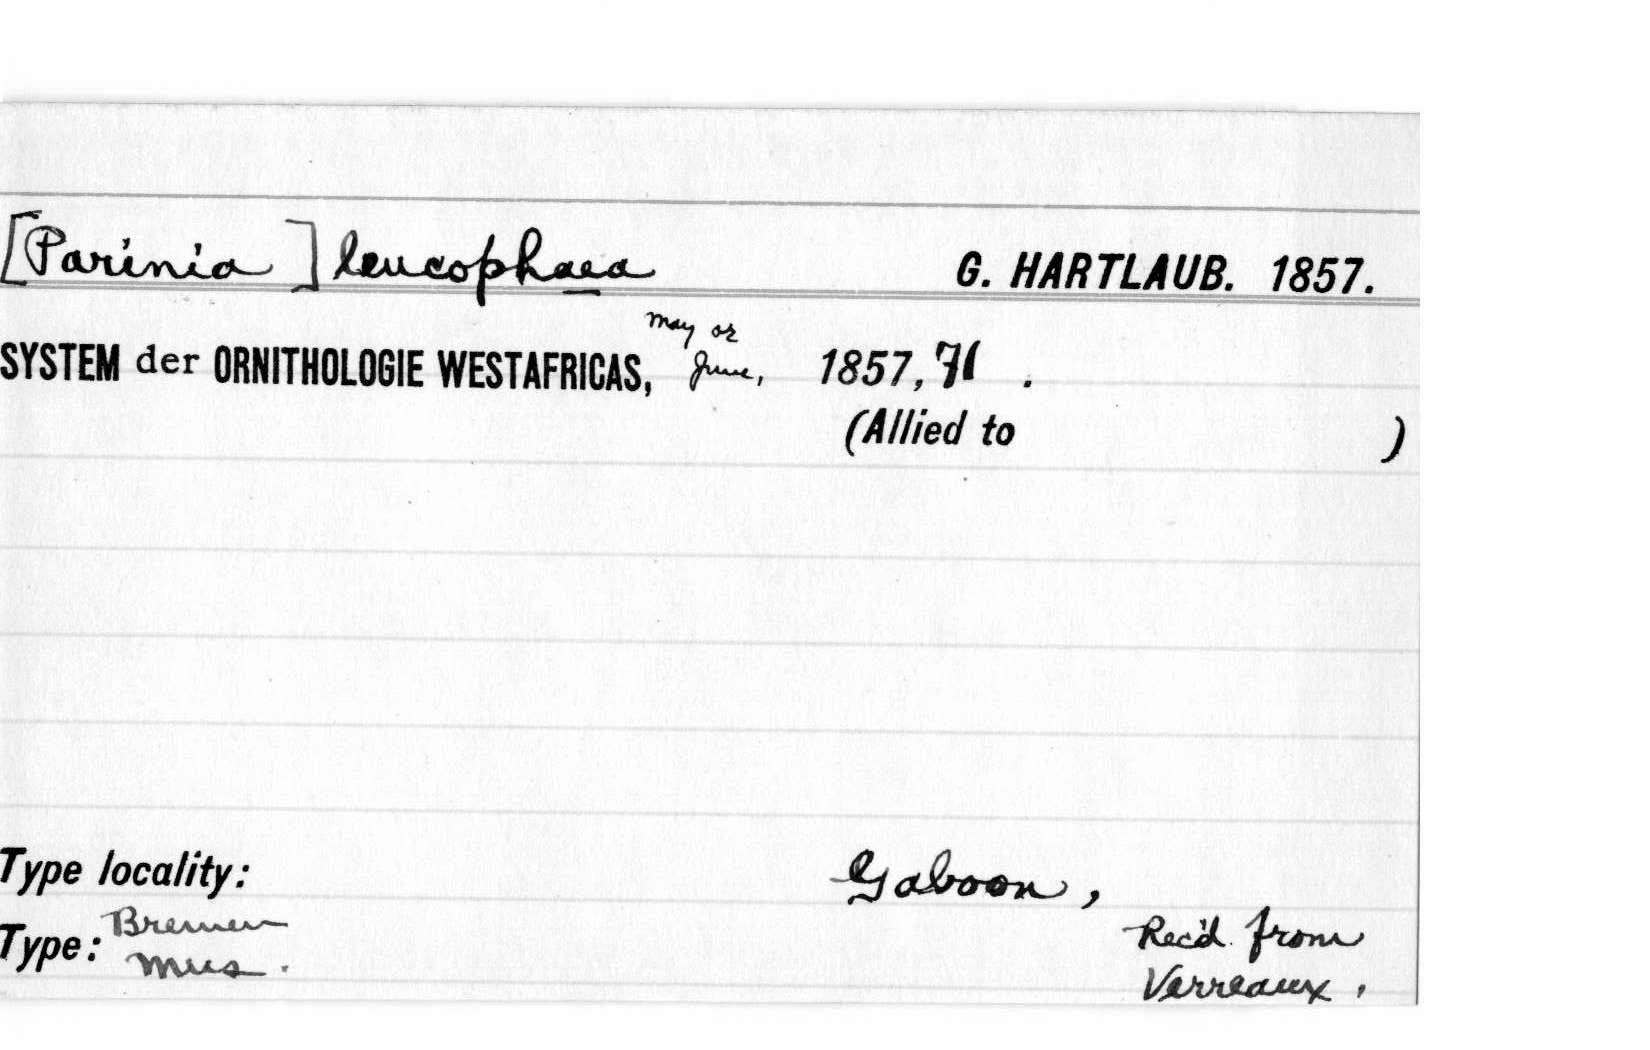 [Parinia] leucophaea G. HARTLAUB. 1857.
SYSTEM der ORNITHOLOGIE WESTAFRICAS, May or June, 1857, 71 .
(Allied to )
Type locality: Gaboon,
Type: Bremen Mus. Rec'd. from Verreaux.